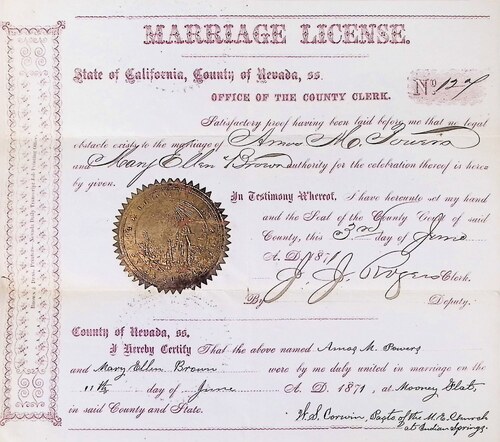 MARRIAGE LICENSE.
State of California, County of Nevada, ss.
No 127
OFFICE OF THE COUNTY CLERK.
Satisfactory proof having been laid before me that no legal
obstacle exists to the marriage of Amos M. Powers
and Mary Ellen Brown authority for the celebration thereof is hereby
by given.
In Testimony Whereof, I have hereunto set my hand
and the Seal of the County Court of said
County, this 3rd day of June
A. D. 1871
J. J. Rogers Clerk.
By Deputy.
County of Nevada, ss.
I Hereby Certify That the above named Amos M. Powers
and Mary Ellen Brown were by me duly united in marriage on the
11th day of June A. D. 1871, at Mooney Flat,
in said County and State.
W. S. Corwin, Pastr of the M. E. Church
at Indian Springs.